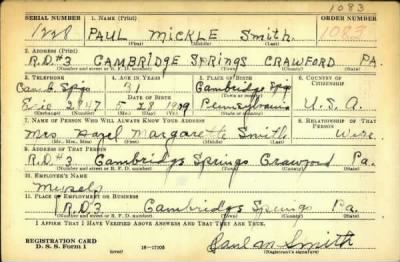 1083
SERIAL NUMBER 1. NAME (Print) ORDER NUMBER
1228 PAUL MICKLE SMITH 1083
(First) (Middle) (Last)
2. ADDRESS (Print)
R.D.#3 CAMBRIDGE SPRINGS CRAWFORD PA.
(Number and street or R. F. D. number) (Town) (County) (State)
3. TELEPHONE 4. AGE IN YEARS 5. PLACE OF BIRTH 6. COUNTRY OF CITIZENSHIP
Camb. Spgs 31 Cambridge Spgs
DATE OF BIRTH (Town or county)
2847 5 28 1909 Pennsylvania U.S.A.
7. NAME OF PERSON WHO WILL ALWAYS KNOW YOUR ADDRESS 8. RELATIONSHIP OF THAT PERSON
Mrs Hazel Margarette Smith Wife
(Mr., Mrs., Miss) (First) (Middle) (Last)
9. ADDRESS OF THAT PERSON
R.D.#3 Cambridge Springs Crawford Pa.
(Number and street or R. F. D. number) (Town) (County) (State)
10. EMPLOYER'S NAME
Myself
11. PLACE OF EMPLOYMENT OR BUSINESS
R.D.3 Cambridge Springs Pa.
(Number and street or R. F. D. number) (Town) (County) (State)
I AFFIRM THAT I HAVE VERIFIED ABOVE ANSWERS AND THAT THEY ARE TRUE.
REGISTRATION CARD
D. S. S. Form 1 (over) Paul M Smith